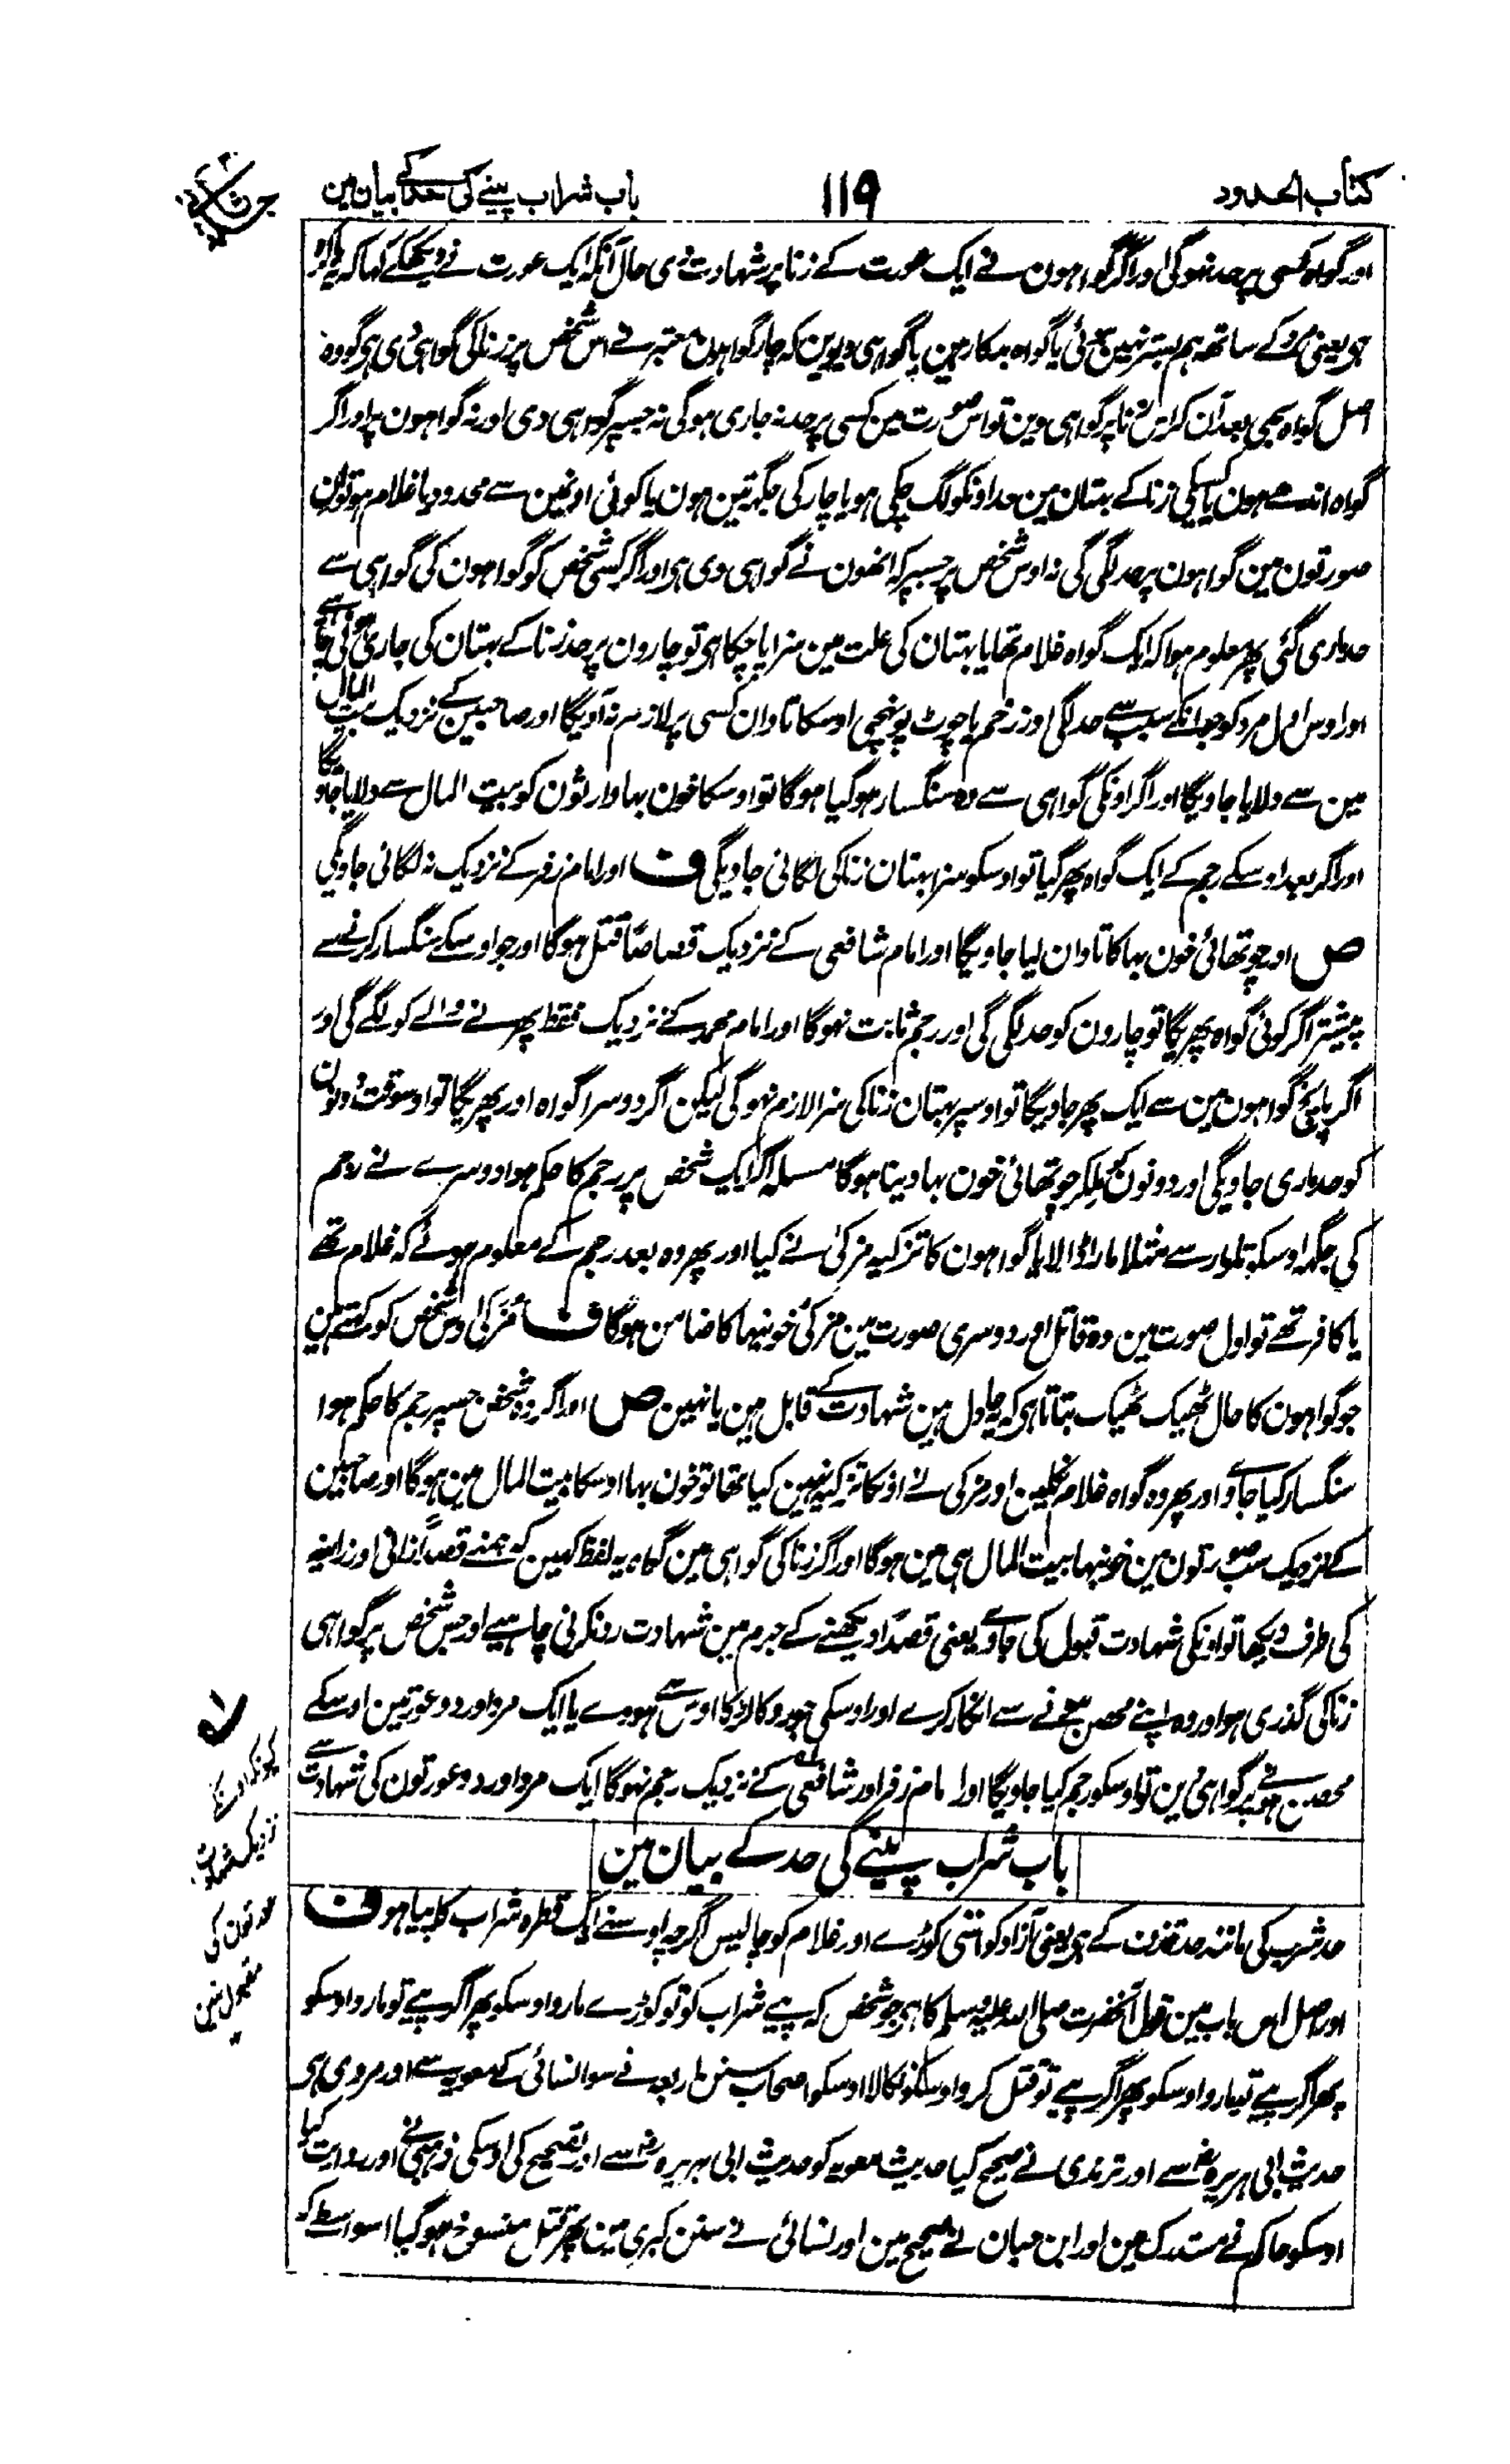 کتاب الحدود
۱۱۹
باب شراب پینے کی حد کے بیان مین
اور گواہ کسی پر حد نہوگی اور اگر گواہون نے ایک عورت کے زنا پر شہادت دی حال آنکہ ایک عورت نے دیکھکے کہا کہ یہ باکرہ
ہی یعنی مرد کے ساتھ ہم بستر نہین ہوئی یا گواہ بدکار ہین یا گواہی دیوین کہ چار گواہون معتبر نے اس شخص پر زنا کی گواہی دی ہی گو وہ
اصل گواہ بھی بعد آن کر اس زنا پر گواہی دین تو اس صورت مین کسی پر حد نہ جاری ہوگی نہ جسپر گواہی دی اور نہ گواہون پر اور اگر
گواہ اندھے ہون یا کسیکی زنا کے بہتان مین حد اونکو لگ چکی ہو یا چار کی جگہ تین ہون یا کوئی اونمین سے محدود یا غلام ہو تو ان
صورتون مین گواہون پر حد لگی گی نہ اوس شخص پر جسپر کہ انھون نے گواہی دی ہی اور اگر کسی شخص کو گواہون کی گواہی سے
حد ماری گئی پھر معلوم ہوا کہ ایک گواہ غلام تھا یا بہتان کی علت مین سزا پا چکا ہی تو چارون پر حد زنا کے بہتان کی جاری
اور اوس مرد کو جو انکے سبب سے حد لگی اور زخم یا چوٹ پونہچی اوسکا تاوان کسی پر لازم نہ آویگا اور صاحبین کے نزدیک بیت المال
مین سے دلایا جاویگا اور اگر اونکی گواہی سے وہ سنگسار ہوگیا ہوگا تو اوسکا خون بہا وارثون کو بیت المال سے دلایا جاویگا
اور اگر بعد اوسکے رجم کے ایک گواہ پھر گیا تو اوسکو سزا بہتان زنا کی لگائی جاویگی ف اور امام زفر کے نزدیک نہ لگائی جاویگی
ص اور چوتھائی خون بہا کا تاوان لیا جاویگا اور امام شافعی کے نزدیک قصاصًا قتل ہوگا اور جو اوسکے سنگسار کرنے سے
پیشتر اگر کوئی گواہ پھریگا تو چارون کو حد لگی گی اور رجم ثابت نہوگا اور امام محمد کے نزدیک فقط پھرنے والے کو لگے گی اور
اگر پانچ گواہون مین سے ایک پھر جاویگا تو اوسپر بہتان زنا کی سزا لازم نہوگی لیکن اگر دوسرا گواہ اور پھریگا تو اوسوقت دونون
کو حد ماری جاویگی اور دونون کو ملکر چوتھائی خون بہا دینا ہوگا مسئلہ اگر ایک شخص پر رجم کا حکم ہوا دوسرے نے رجم
کی جگہ اوسکو تلوار سے مثلا مار ڈالا یا گواہون کا تزکیہ مزکی نے کیا اور پھر وہ بعد رجم کے معلوم ہوئے کہ غلام تھے
یا کافر تھے تو اول صورت مین وہ قاتل اور دوسری صورت مین مزکی خونبہا کا ضامن ہوگا ف مُزَکّی اوس شخص کو کہتے ہین
جو گواہون کا حال ٹھیک ٹھیک بتاتا ہی کہ یہ عادل ہین شہادت کے قابل ہین یا نہین ص اور اگر وہ شخص جسپر رجم کا حکم ہوا
سنگسار کیا جاوے اور پھر وہ گواہ غلام نکلین اور مزکی نے اونکا تزکیہ نہین کیا تھا تو خون بہا اوسکا بیت المال مین ہوگا اور صاحبین
کے نزدیک سب صورتون مین خونبہا بیت المال ہی مین ہوگا اور اگر زنا کی گواہی مین گواہ یہ لفظ کہین کہ ہمنے قصدًا زانی اور زانیہ
کی طرف دیکھا تو اونکی شہادت قبول کی جاوے یعنی قصدًا دیکھنے کے جرم مین شہادت رد نکرنی چاہیے اور جس شخص پر گواہی
زنا کی گذری ہو اور وہ اپنے محصن ہونے سے انکار کرے اور اوسکی جورو کا لڑکا اوس سے ہووے یا ایک مرد اور دو عورتین اوسکے
محصن ہونے پر گواہی دین تو اوسکو رجم کیا جاویگا اور امام زفر اور شافعی کے نزدیک رجم نہوگا ایک مرد اور دو عورتون کی شہادت سے
باب شراب پینے کی حد کے بیان مین
حد شرب کی مانند حد قذف کے ہی یعنی آزاد کو اسّی کوڑے اور غلام کو چالیس اگرچہ اوسنے ایک قطرہ شراب کا پیا ہو ف
اور اصل اس باب مین قول آنحضرت صلی اللہ علیہ وسلم کا ہی جو شخص کہ پیے شراب کو تو کوڑے مارو اوسکو پھر اگر پیے تو مارو اوسکو
پھر اگر پیے تو مارو اوسکو پھر اگر پیے تو قتل کرو اوسکو نکالا اوسکو اصحاب سنن اربعہ نے سوا نسائی کے معویہ سے اور مروی ہی
حدیث ابی ہریرہ سے اور ترمذی نے صحیح کیا حدیث معویہ کو حدیث ابی ہریرہ سے اور تصحیح کی اوسکی ذہبی نے اور روایت کیا
اوسکو حاکم نے مستدرک مین اور ابن حبان نے صحیح مین اور نسائی نے سنن کبری مین پھر قتل منسوخ ہوگیا اسواسطے کہ
کیونکہ اونکے
نزدیک شہادت
عورتون کی
مقبول نہین